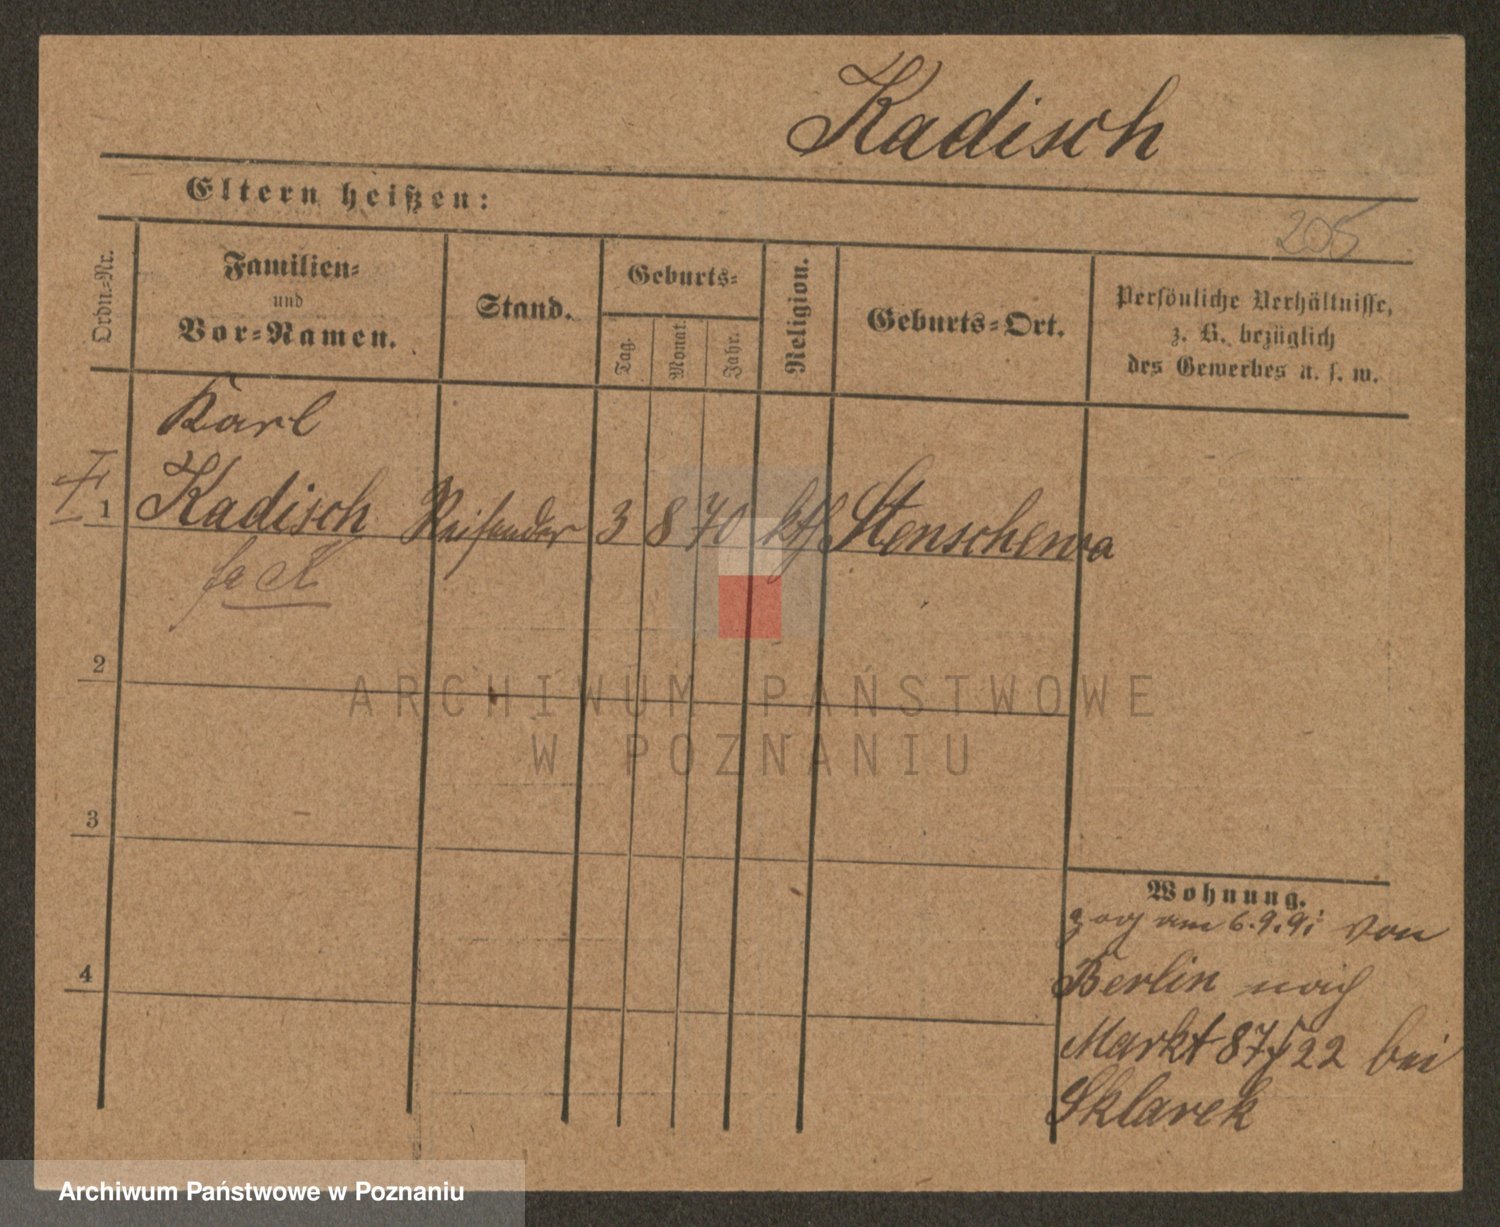 Kadisch
Eltern heißen:
205
Ordn.-Nr.
Familien-
und
Vor-Namen.
Stand.
Geburts-
Tag.
Monat.
Jahr.
Religion.
Geburts-Ort.
Persönliche Verhältnisse,
z. B. bezüglich
des Gewerbes u. s. w.
Karl
1 Kadisch Reisender 3 8 70 Stenschewa
2
3
4
Wohnung.
zog am 6.9.91 von
Berlin nach
Markt 87/22 bei
Sklarek
ARCHIWUM PAŃSTWOWE
W POZNANIU
Archiwum Państwowe w Poznaniu